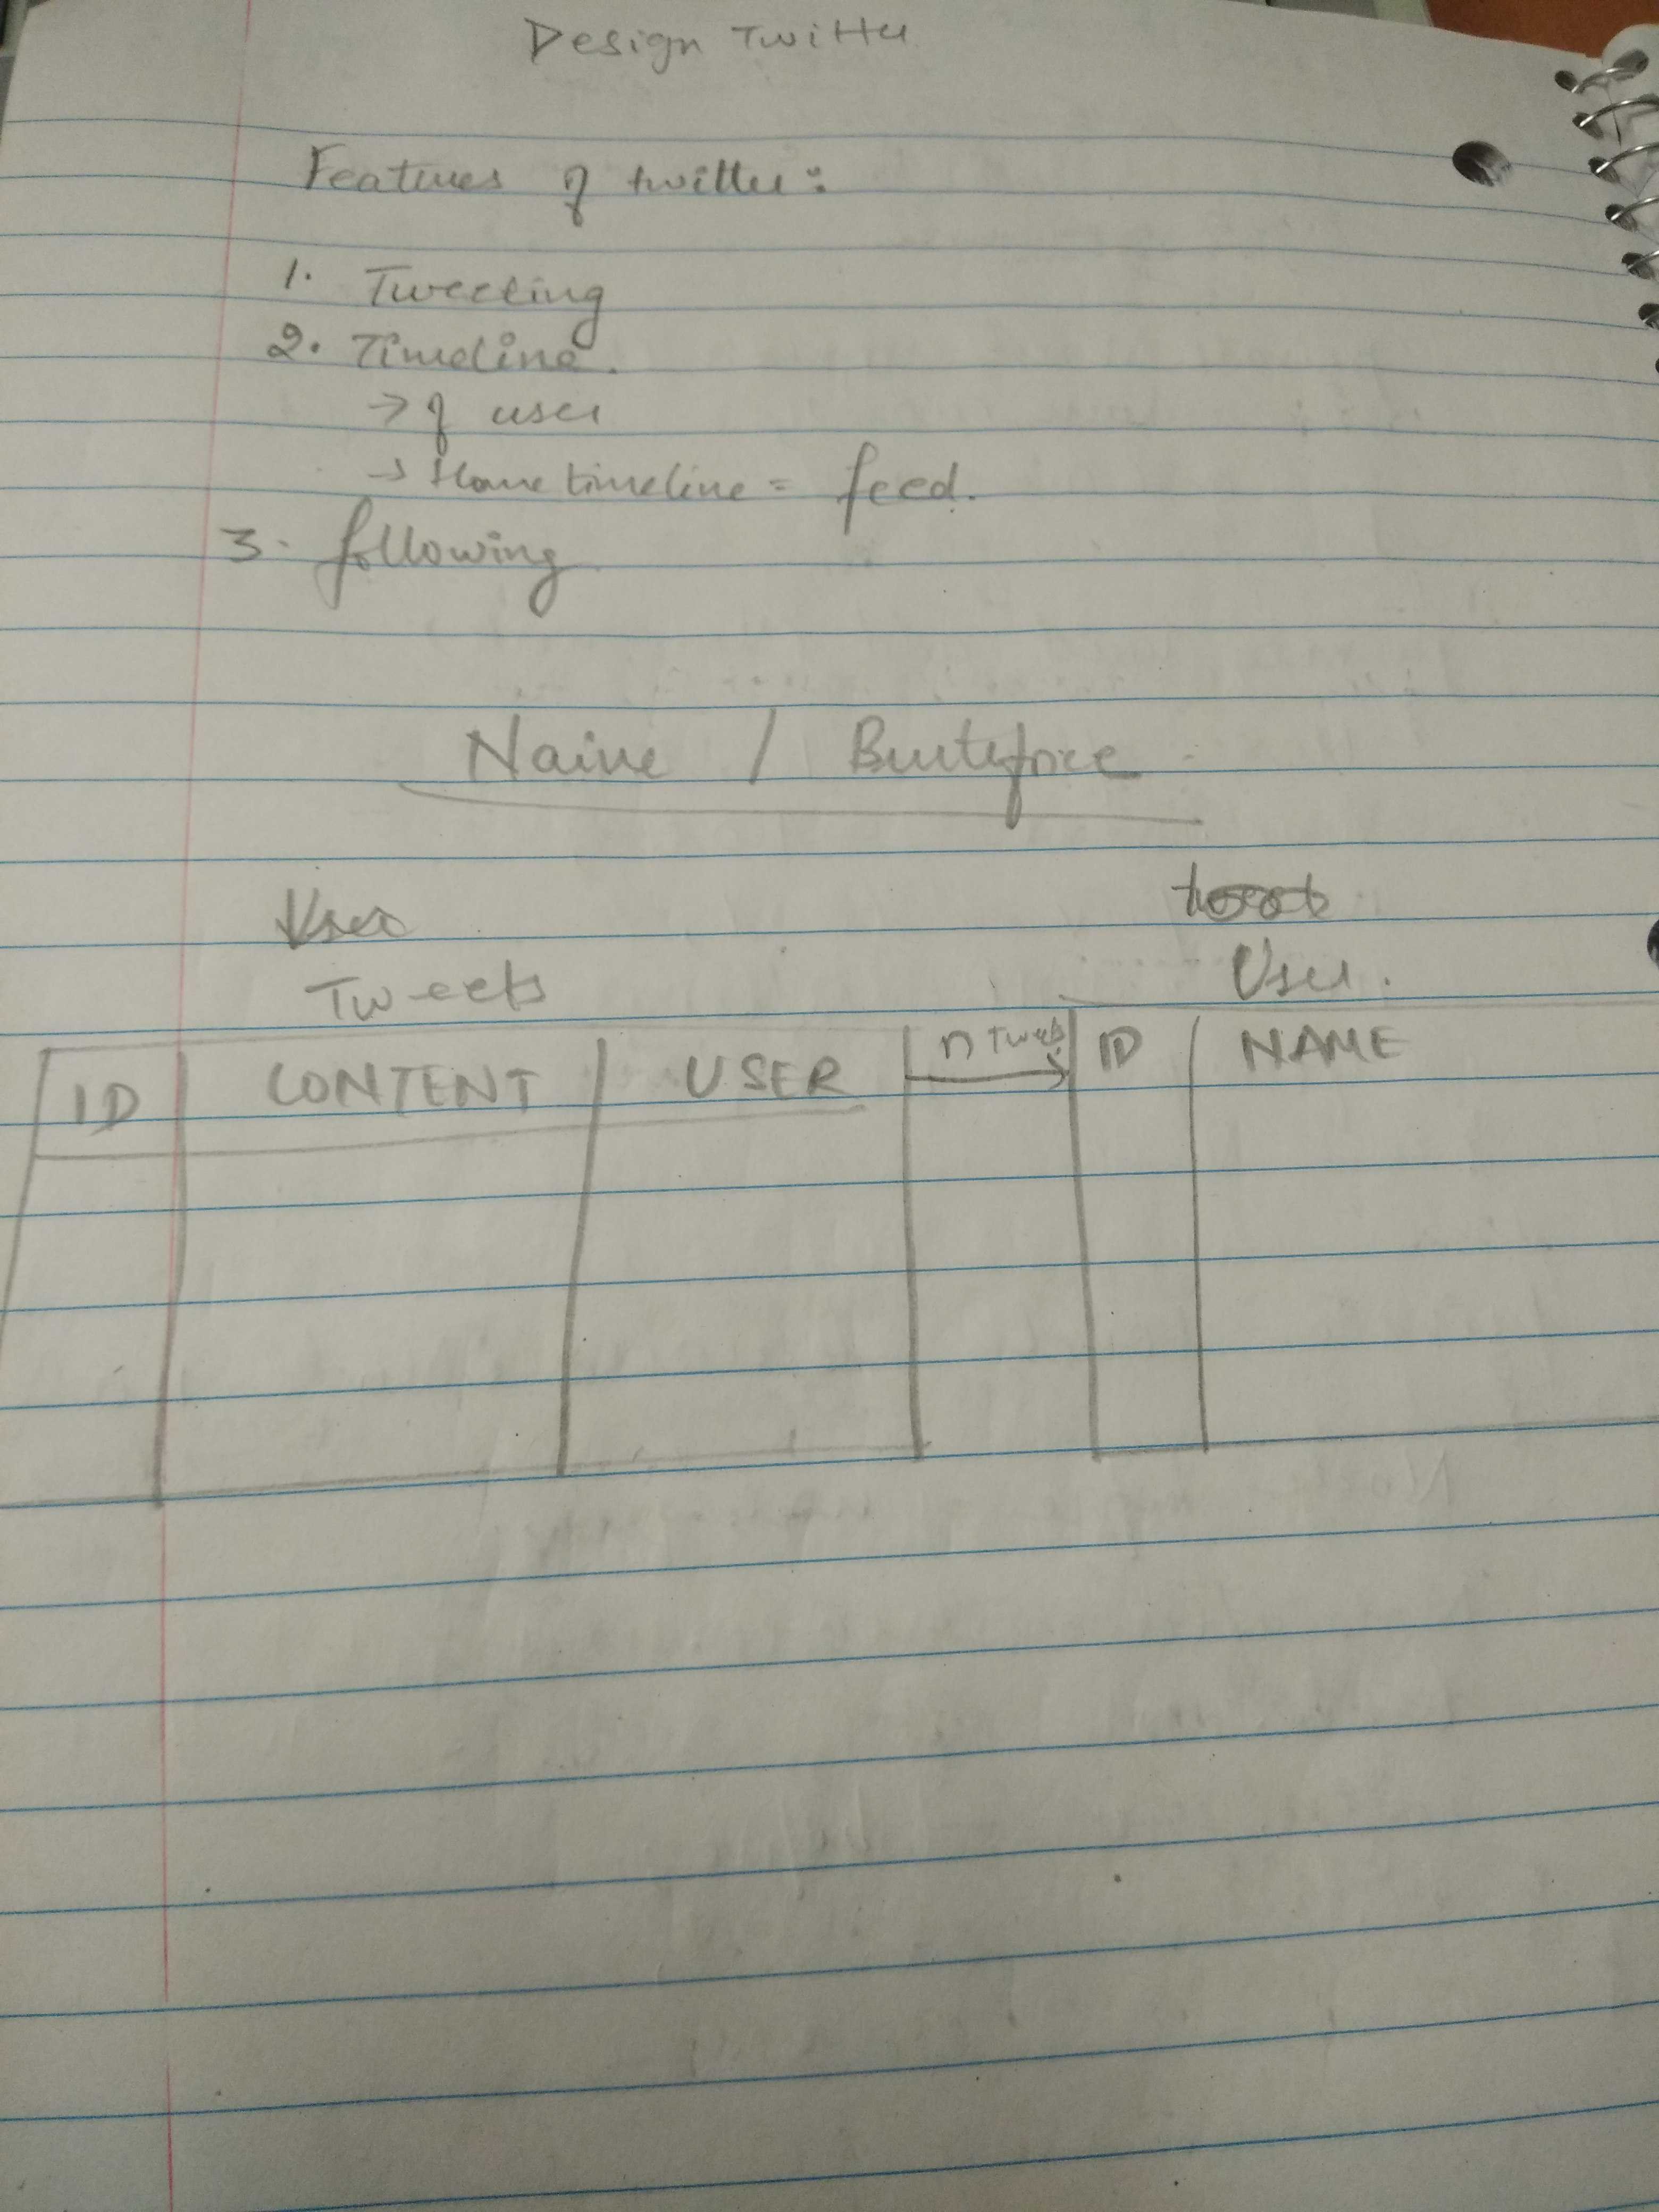 Design Twitter
Features of twitter:
1. Tweeting
2. Timeline.
→ of user
→ Home timeline = feed.
3. following
Naive / Bruteforce
User
Tweets
User.
ID CONTENT USER
n Tweets
ID NAME